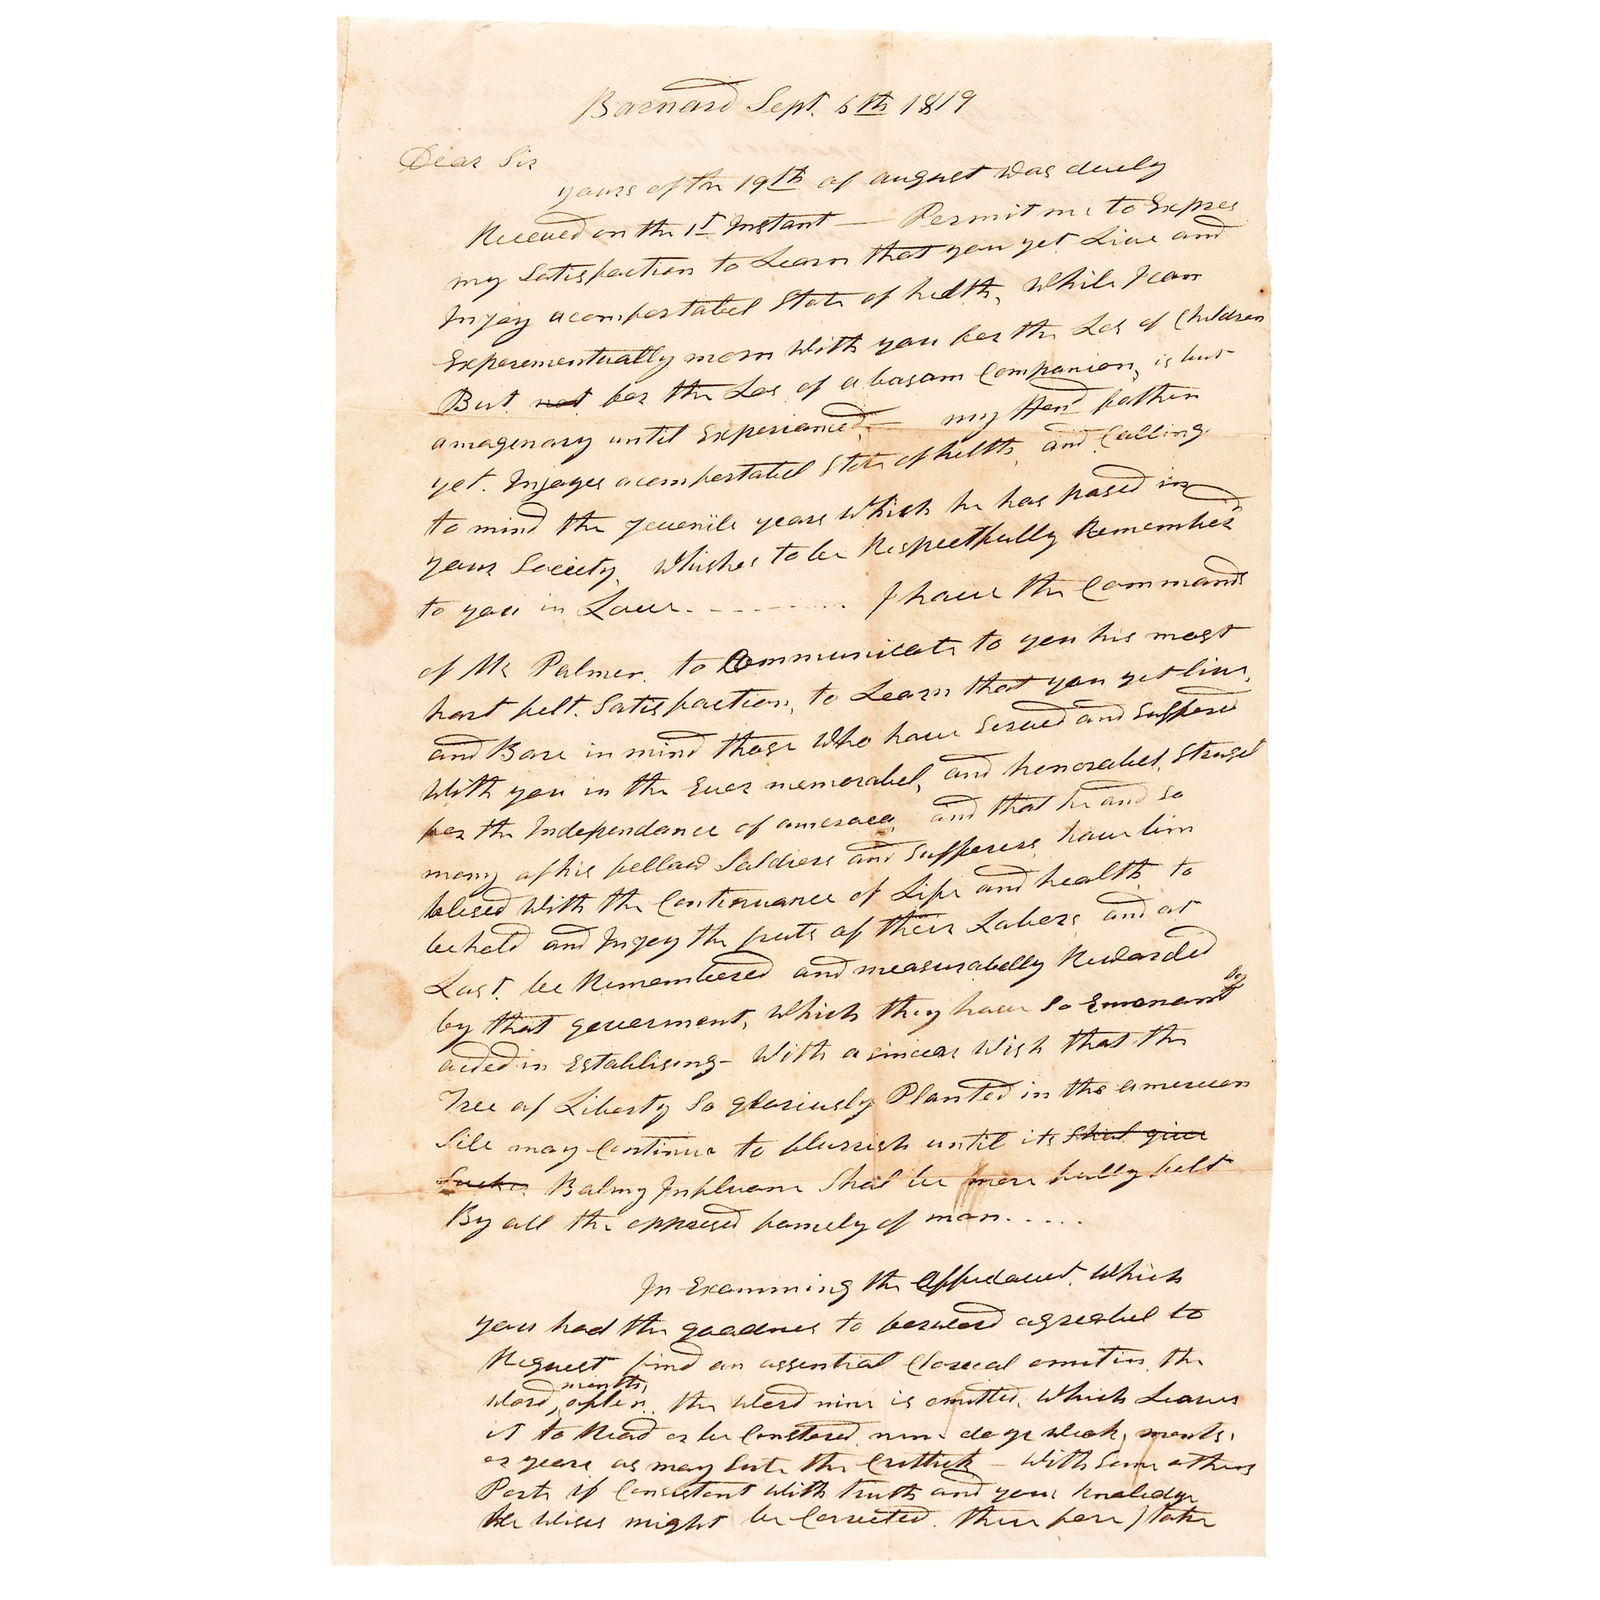 Barnard Sept. 6th 1819
Dear Sir
yours of the 19th of august Was duely
Receued on the 1st Instant — Permit me to Expres
my Satisfaction to Learn that you yet Live and
Injoy acomfortabel State of helth, While I can
Experementually morn With you for the Los of Children
But not for the Los of a bosom Companion, is but
amagenary until Experianced, — my Hond father
yet. Injoyes acomfortabel State of helth, and Calling
to mind the juvenile years Which he has pased in
your Society, Whishes to be Respectfully Remembred
to you in Love. - - - - - - - I have the Command
of Mr Palmer. to Communicate to you his most
hart felt. Satisfaction, to Learn that you yet live,
and Bare in mind those Who have Served and Suffered
With you in the Ever memorabel, and honorabel, Strugel
for the Independance of ameraca, and that he and So
many of his fellow Soldiers and Sufferers, have bin
blesed With the Continuance of Life and health, to
behold and Injoy the fruts of their Labors, and at
Last. be Remembered and measurabelly Rewarded
by that goverment, Which they have So Emenant ly
aided in Establising - With a sincear Wish that the
Tree of Liberty So gloriously Planted in the american
Sile may Continue to flurrish until its Shal give
Balmy Influance Shal be more fully felt
By all the oppresed family of man.....
In Examining the Affidavet. Which
you had the goodnes to forword agreabel to
Request find an essential Clarical omition. the
months,
Word, after. the Word nine is omitted, Which Leaves
it to Read or be Constered nine days Week, months,
or years as may Sute the Crittick — With Some others
Parts if Consistant With truth and your knoledge
might be Corrected. there fore I take